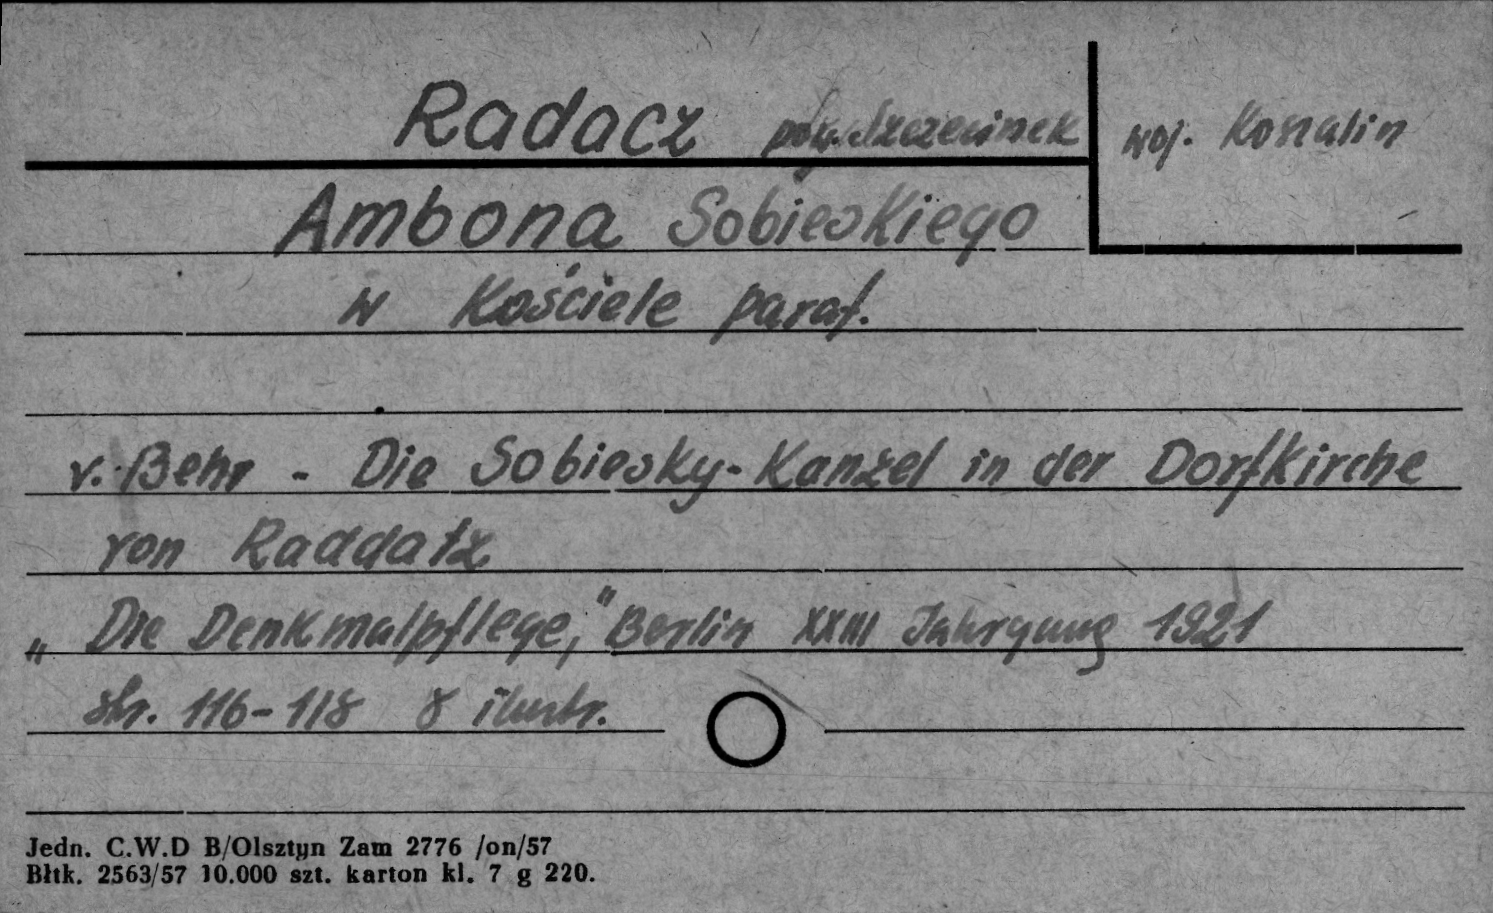 Radacz pow. Szczecinek woj. Koszalin
Ambona Sobieskiego
w Kościele paraf.
v. Behr - Die Sobiesky-Kanzel in der Dorfkirche
von Raddatz
„Die Denkmalpflege," Berlin XXIII Jahrgang 1921
str. 116-118 8 ilustr.
Jedn. C.W.D B/Olsztyn Zam 2776 /on/57
Błtk. 2563/57 10.000 szt. karton kl. 7 g 220.